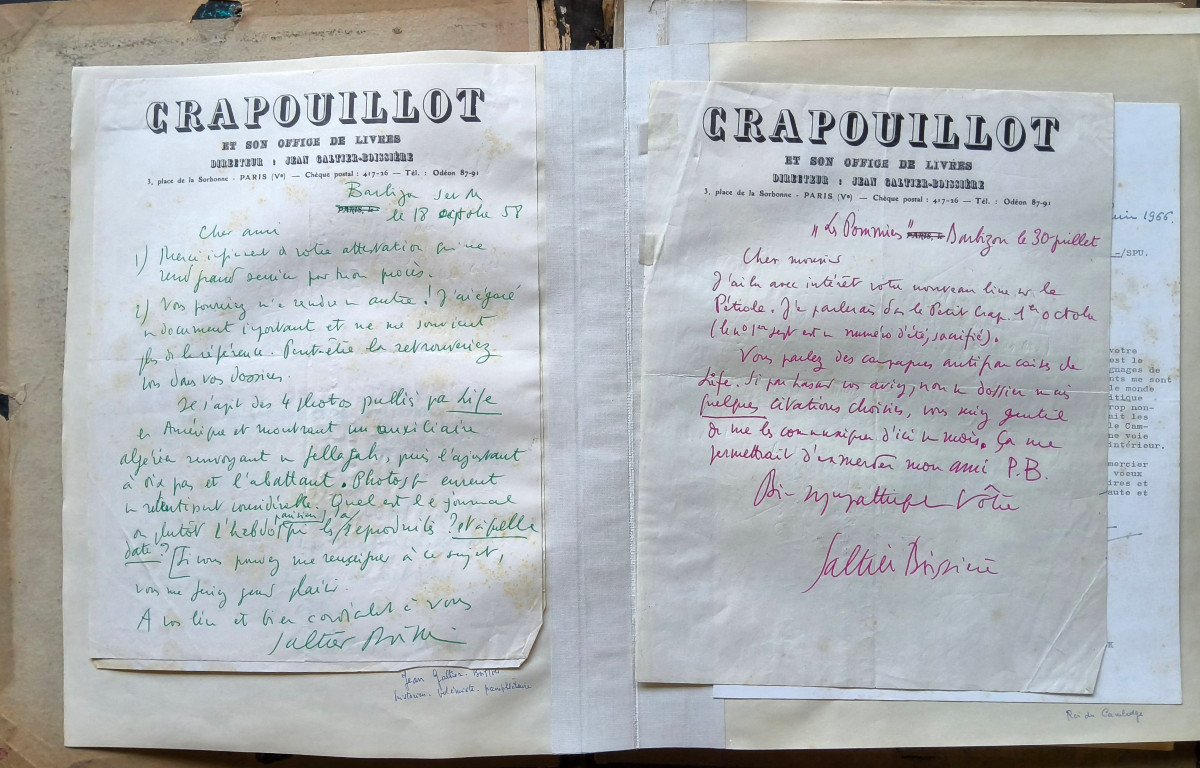 CRAPOUILLOT
ET SON OFFICE DE LIVRES
DIRECTEUR : JEAN GALTIER-BOISSIÈRE
3, place de la Sorbonne - PARISC (Vᵉ) — Chèque postal : 417-26 — Tél. : Odéon 87-91
Barbizon
PARIS, le
le 18 octobre 58
Cher ami
1) Merci infiniment à votre attestation qui me
rend grand service pour mon procès.
2) Vous pourriez m'en rendre un autre ! J'ai égaré
un document important et ne me souviens
plus de la référence. Peut-être la retrouveriez
vous dans vos dossiers
Il s'agit des 4 photos publiés par Life
en Amérique et montrant un auxiliaire
algérien renvoyant un fellagah, puis l'ajustant
à dix pas et l'abattant. Photos qui eurent
un retentissant considérable. Quel est le journal
ou plutôt l'hebdo parisien qui les a reproduits ? et à quelle
date ? Si vous pouvez me renseigner à ce sujet,
vous me feriez grand plaisir.
A vos lieu et bien cordialement à vous
Galtier Boissière
Jean Galtier-Boissière
historien, polémiste, pamphlétaire
CRAPOUILLOT
ET SON OFFICE DE LIVRES
DIRECTEUR : JEAN GALTIER-BOISSIÈRE
3, place de la Sorbonne - PARIS (Vᵉ) — Chèque postal : 417-26 — Tél. : Odéon 87-91
"Les Pommiers" PARIS, le Barbizon le 30 juillet
Cher monsieur
J'ai lu avec intérêt votre nouveau livre sur le
Pétrole. J'en parlerai dans le Petit Crap. 1er octobre
(le n° 1er sept est un numéro d'été, sacrifié).
Vous parlez des campagnes antifrançaises de
Life. Si par hasard vous aviez, non un dossier mais
quelques citations choisies, vous seriez gentil
de me les communiquer d'ici un mois. Ça me
permettrait d'emmerder mon ami P.B.
Bien sympathiquement Vôtre
Galtier Boissière
juin 1966.
/SPU.
votre
est le
gnages de
nts me sont
le monde
itique
rop non-
ait les
le Cam-
ne voie
intérieur.
mercier
voeux
ires et
aute et
K
Roi du Cambodge